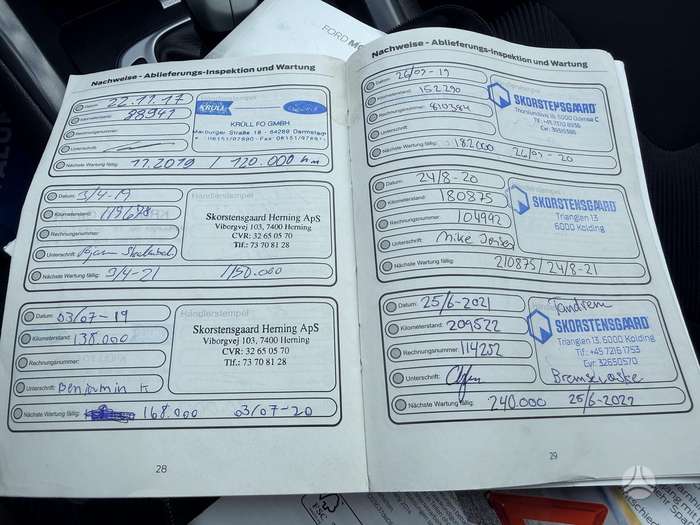 FORD MO
Nachweise - Ablieferungs-Inspektion und Wartung
Datum: 22.11.17
Kilometerstand: 88941
Rechnungsnummer:
Unterschrift:
Nächste Wartung fällig: 11.2019 / 120.000 km
Händlerstempel
KRÜLL
KRÜLL FO GMBH
Marburger Straße 18 - 64289 Darmstadt
Datum: 3/4-19
Kilometerstand: 119698
Rechnungsnummer:
Unterschrift:
Nächste Wartung fällig: 3/4-21 / 150.000
Händlerstempel
Skorstensgaard Herning ApS
Viborgvej 103, 7400 Herning
CVR: 32 65 05 70
Tlf.: 73 70 81 28
Datum: 03/07-19
Kilometerstand: 138.000
Rechnungsnummer:
Unterschrift: Benjamin K
Nächste Wartung fällig: 168.000 03/07-20
Händlerstempel
Skorstensgaard Herning ApS
Viborgvej 103, 7400 Herning
CVR: 32 65 05 70
Tlf.: 73 70 81 28
28
Nachweise - Ablieferungs-Inspektion und Wartung
Datum: 26/09-19
Kilometerstand: 152290
Rechnungsnummer: 810384
Unterschrift:
Nächste Wartung fällig: 182000 26/09-20
SKORSTENSGAARD
Datum: 24/8-20
Kilometerstand: 180875
Rechnungsnummer: 104992
Unterschrift: Mike Jensen
Nächste Wartung fällig: 210875 / 24/8-21
SKORSTENSGAARD
Trianglen 13
6000 Kolding
Datum: 25/6-2021
Kilometerstand: 209522
Rechnungsnummer: 114252
Unterschrift:
Nächste Wartung fällig: 240.000 25/6-2022
Tandrem
SKORSTENSGAARD
Trianglen 13, 6000 Kolding
Tlf.: +45 7216 1753
Cvr: 32650570
Bremsevæske
29